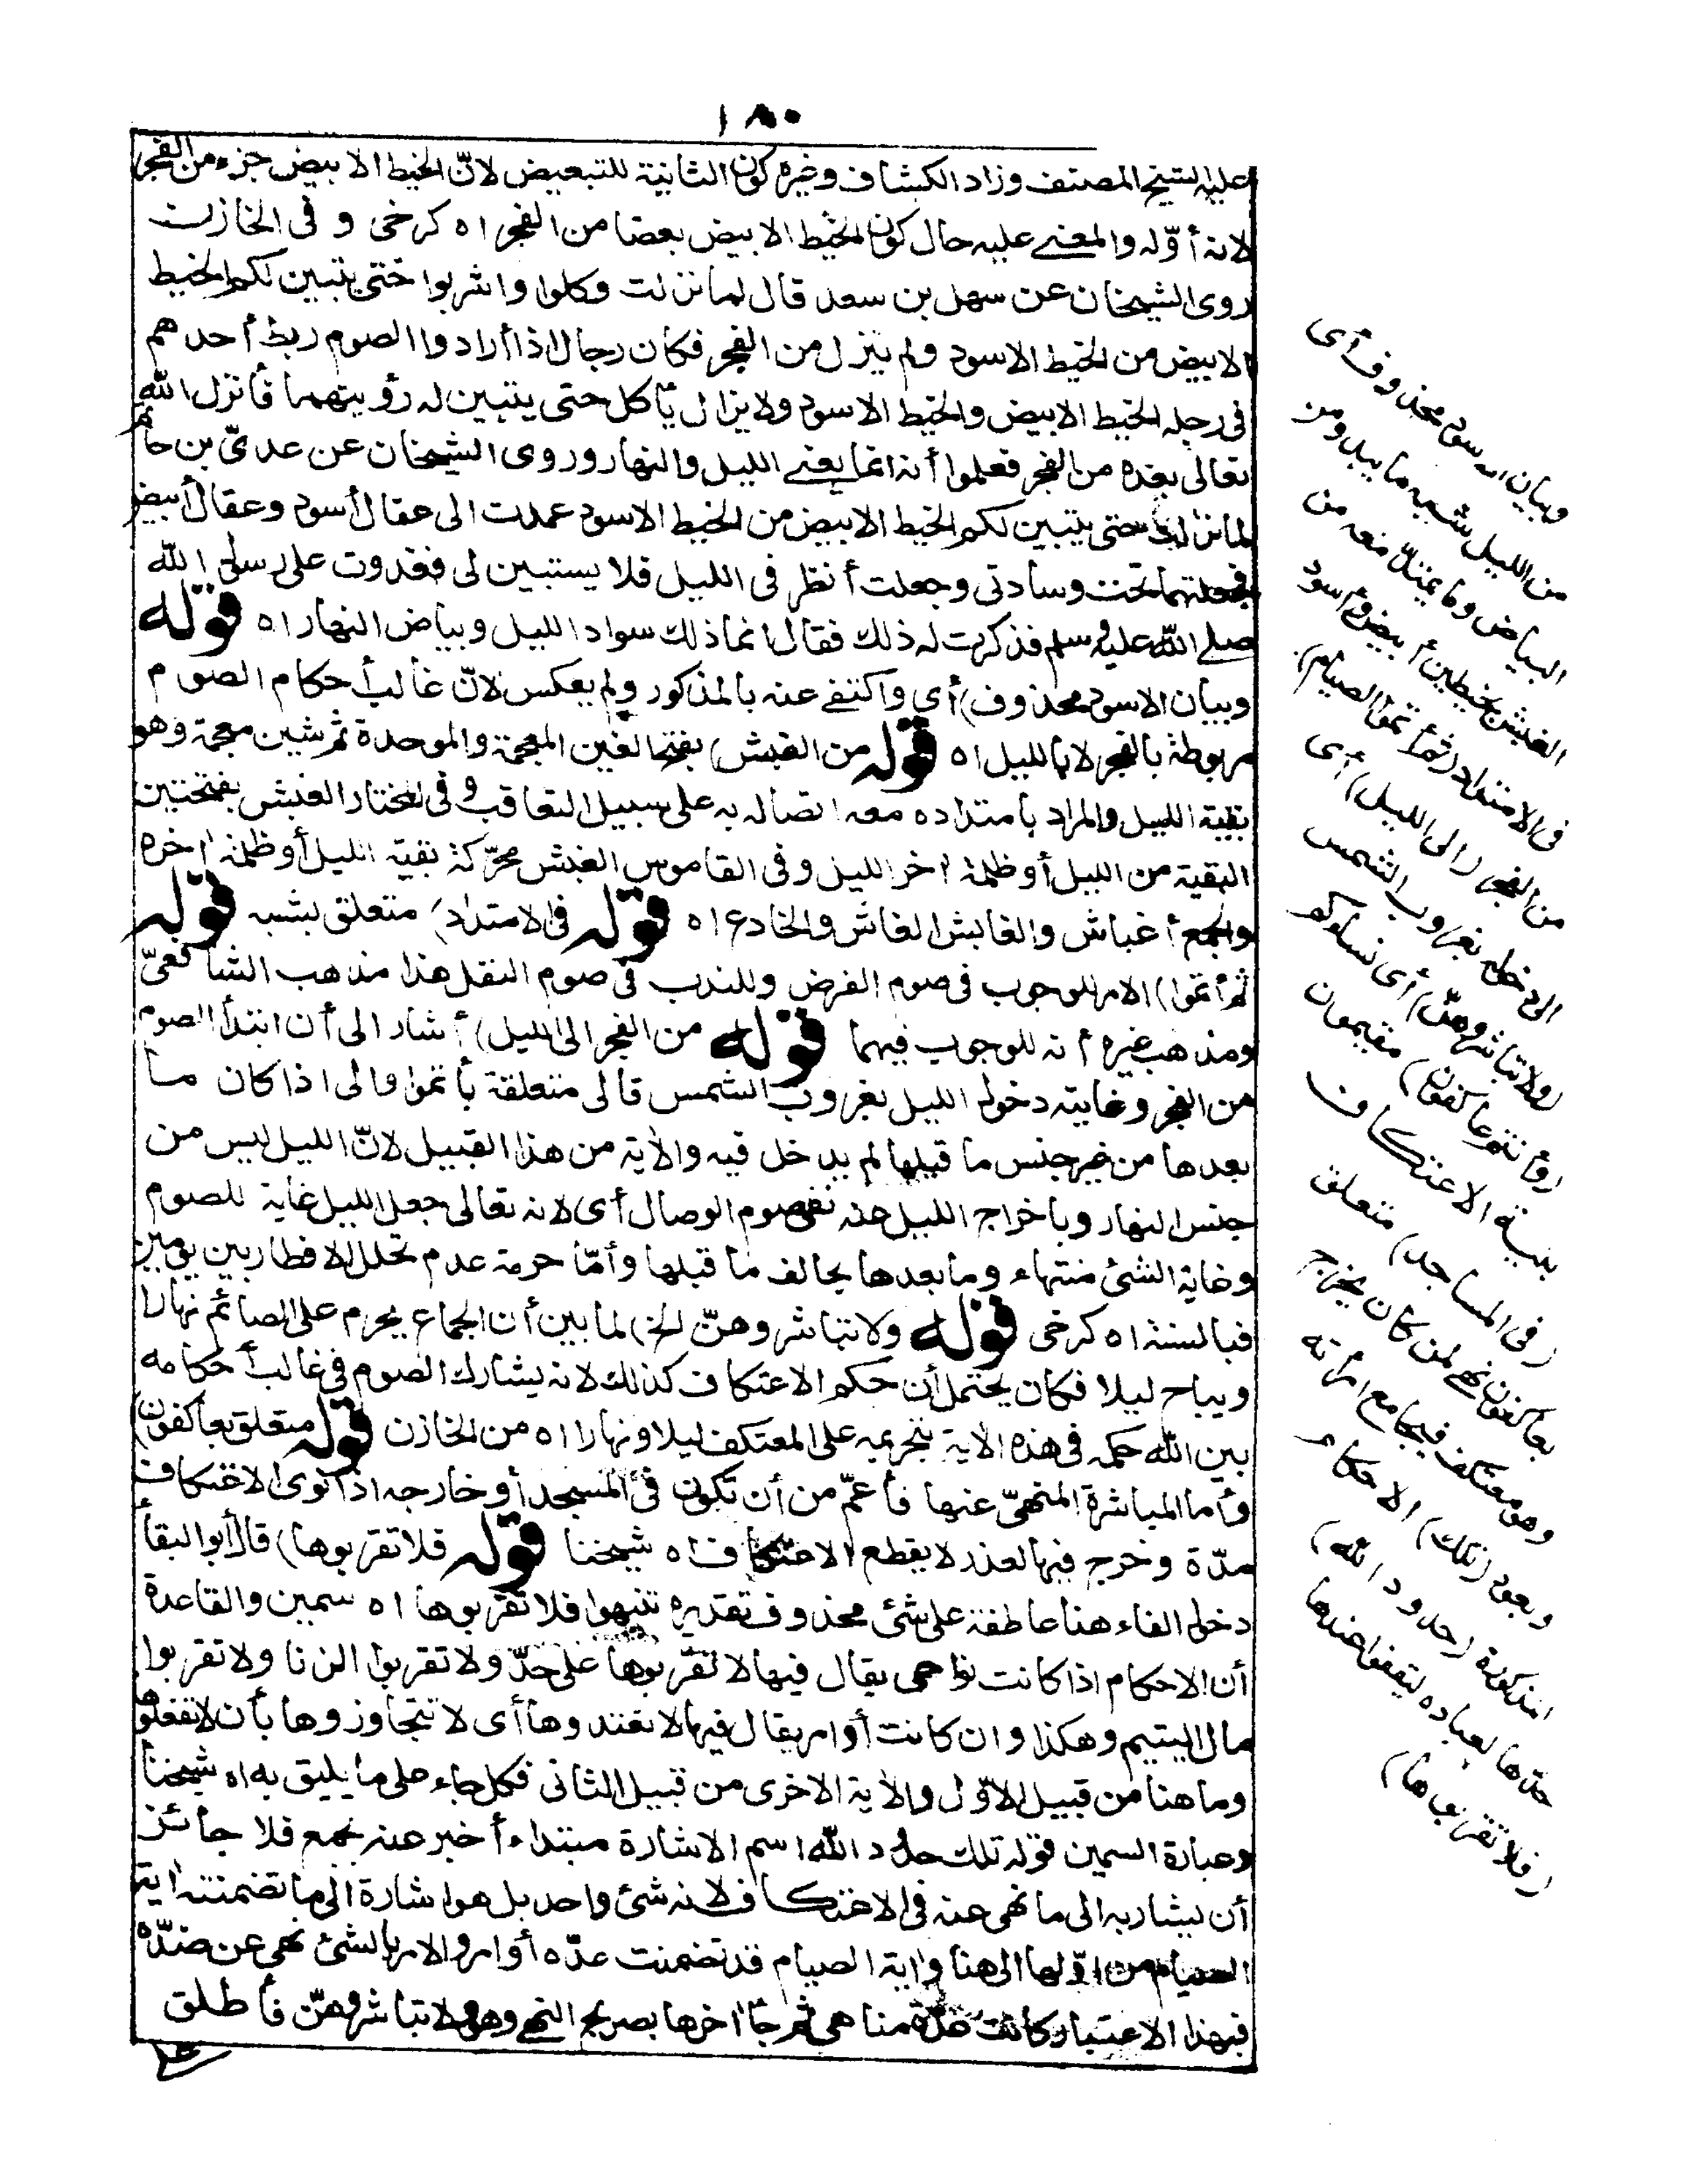 ١٨٠
عليه الشيخ المصنف وزاد الكشاف وغيره كون الثانية للتبعيض لانّ الخيط الابيض جزء من الفجر
لانه أوّله والمعنى عليه حال كون الخيط الابيض بعضا من الفجر اه كرخى و فى الخازن
روى الشيخان عن سهل بن سعد قال لما نزلت وكلوا واشربوا حتى يتبين لكم الخيط
الابيض من الخيط الاسود ولم ينزل من الفجر فكان رجال اذا أرادوا الصوم ربط أحدهم
فى رجله الخيط الابيض والخيط الاسود ولا يزال يأكل حتى يتبين له رؤيتهما فأنزل الله
تعالى بعده من الفجر فعلموا أنه انما يعنى الليل والنهار وروى الشيخان عن عدىّ بن حاتم
لما نزلت حتى يتبين لكم الخيط الابيض من الخيط الاسود عمدت الى عقال أسود وعقال أبيض
فجعلتهما تحت وسادتى وجعلت أنظر فى الليل فلا يستبين لى فغدوت على رسول الله
صلى الله عليه وسلم فذكرت له ذلك فقال انما ذلك سواد الليل وبياض النهار اه قوله
وبيان الاسود محذوف) أى واكتفى عنه بالمذكور ولم يعكس لانّ غالب أحكام الصوم
مربوطة بالفجر لا بالليل اه قوله من الغبش) بفتح الغين المعجمة والموحدة ثم شين معجمة وهو
بقية الليل والمراد بامتداده معه اتصاله به على سبيل التعاقب وفى المختار الغبش بفتحتين
البقية من الليل أو ظلمة اخر الليل وفى القاموس الغبش محرّكة بقية الليل أو ظلمة اخره
والجمع أغباش والغابش الغاش والخادع اه قوله فى الامتداد) متعلق بشبه قوله
ثم أتموا) الامر للوجوب فى صوم الفرض وللندب فى صوم النفل هذا مذهب الشافعىّ
ومذهب غيره أنه للوجوب فيهما قوله من الفجر الى الليل) أشار الى أن ابتدأ الصوم
من الفجر وغايته دخول الليل بغروب الشمس فالى متعلقة بأتموا والى اذا كان ما
بعدها من غير جنس ما قبلها لم يدخل فيه والآية من هذا القبيل لانّ الليل ليس من
جنس النهار وباخراج الليل عنه نفى صوم الوصال أى لانه تعالى جعل الليل غاية للصوم
وغاية الشئ منتهاء وما بعدها يخالف ما قبلها وأمّا حرمة عدم تخلل الافطار بين يومين
فبالسنة اه كرخى قوله ولا تباشروهنّ الخ) لما بين أن الجماع يحرم على الصائم نهارا
ويباح ليلا فكان يحتمل أن حكم الاعتكاف كذلك لانه يشارك الصوم فى غالب أحكامه
بين الله حكمه فى هذه الاية بتحريمه على المعتكف ليلا ونهارا اه من الخازن قوله متعلق بعاكفون)
وأما المباشرة المنهىّ عنها فأعمّ من أن تكون فى المسجد أو خارجه اذا نوى الاعتكاف
مدّة وخرج فيها لعذر لا يقطع الاعتكاف اه شيخنا قوله فلا تقربوها) قال أبو البقأ
دخول الفاء هنا عاطفة على شئ محذوف تقديره تنبهوا فلا تقربوها اه سمين والقاعدة
أن الاحكام اذا كانت نواهى يقال فيها لا تقربوها على حدّ ولا تقربوا الزنا ولا تقربوا
مال اليتيم وهكذا وان كانت أوامر يقال فيها لا تعتدوها أى لا تتجاوزوها بأن لا تفعلوها
وما هنا من قبيل الاوّل والآية الاخرى من قبيل الثانى فكل جاء على ما يليق به اه شيخنا
وعبارة السمين قوله تلك حدود الله اسم الاشارة مبتداء أخبر عنه بجمع فلا جائز
أن يشار به الى ما نهى عنه فى الاعتكاف لانه شئ واحد بل هو اشارة الى ما تضمنته اية
الصيام من اوّلها الى هنا واية الصيام قد تضمنت عدّه أوامر والامر بالشئ نهى عن ضدّه
فبهذا الاعتبار كانت عدّة مناهى ثم جاأ اخرها بصريح النهى وهو ولا تباشروهنّ فأطلق
وبيان الاسود محذوف أى
من الليل شبه ما يبدو من
البياض وما يمتدّ معه من
الغبش بخيطين أبيض وأسود
فى الامتداد (ثم أتموا الصيام)
من الفجر (الى الليل) أى
الى دخوله بغروب الشمس
(ولا تباشروهنّ) أى نساؤكم
(وأنتم عاكفون) مقيمون
بنية الاعتكاف
(فى المساجد) متعلق
بعاكفون نهى لمن كان يخرج
وهو معتكف فيجامع امرأته
ويعود (تلك) الاحكام
المذكورة (حدود الله)
حدّها لعباده ليقفوا عندها
(فلا تقربوها)